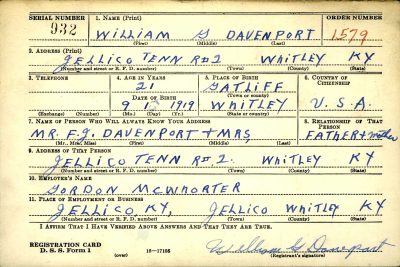 SERIAL NUMBER 1. NAME (Print) ORDER NUMBER
932 WILLIAM G DAVENPORT 1579
(First) (Middle) (Last)
2. ADDRESS (Print)
JELLICO TENN R#2 WHITLEY KY
(Number and street or R. F. D. number) (Town) (County) (State)
3. TELEPHONE 4. AGE IN YEARS 5. PLACE OF BIRTH 6. COUNTRY OF CITIZENSHIP
21 GATLIFF
DATE OF BIRTH (Town or county)
9 1 1919 WHITLEY U.S.A.
(Exchange) (Number) (Mo.) (Day) (Yr.) (State or country)
7. NAME OF PERSON WHO WILL ALWAYS KNOW YOUR ADDRESS 8. RELATIONSHIP OF THAT PERSON
MR. F.G. DAVENPORT + MRS, FATHER + mother
(Mr., Mrs., Miss) (First) (Middle) (Last)
9. ADDRESS OF THAT PERSON
JELLICO TENN R#2. WHITLEY KY
(Number and street or R. F. D. number) (Town) (County) (State)
10. EMPLOYER'S NAME
GORDON MCWHORTER
11. PLACE OF EMPLOYMENT OR BUSINESS
JELLICO, KY, JELLICO WHITLEY KY
(Number and street or R. F. D. number) (Town) (County) (State)
I AFFIRM THAT I HAVE VERIFIED ABOVE ANSWERS AND THAT THEY ARE TRUE.
REGISTRATION CARD
D. S. S. Form 1 16—17105 William G Davenport
(over) (Registrant's signature)